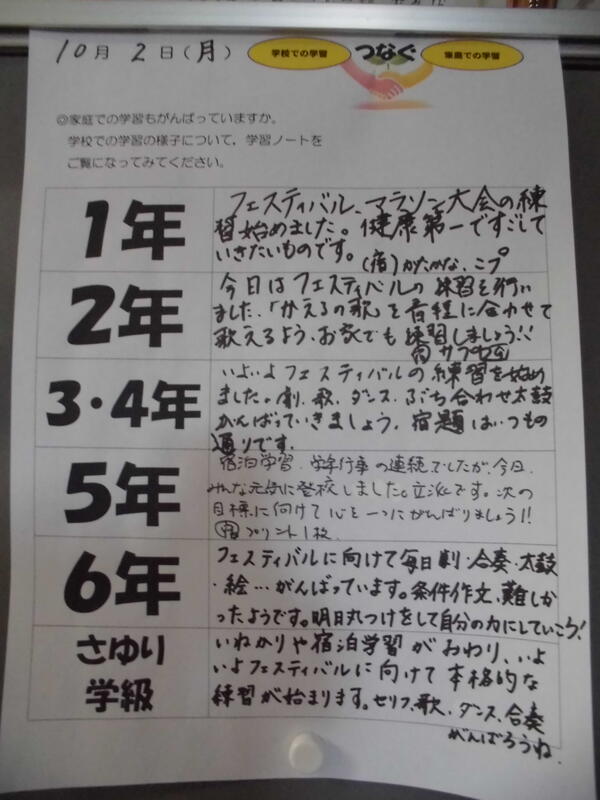 10月 2日(月)
学校での学習 つなぐ 家庭での学習
◎家庭での学習もがんばっていますか。
学校での学習の様子について，学習ノートを
ご覧になってみてください。
1年
フェスティバル、マラソン大会の練
習始めました。健康第一ですごして
いきたいものです。
(宿)かたかな、こプ
2年
今日はフェスティバルの練習を行い
ました。「かえるの歌」を音程に合わせて
歌えるよう、お家でも練習しましょう!!
3・4年
いよいよフェスティバルの練習を始め
ました。劇、歌、ダンス、ぶち合わせ太鼓
がんばっていきましょう。宿題はいつもの
通りです.
5年
宿泊学習、学年行事の連続でしたが、今日、
みんな元気に登校しました。立派です。次の
目標に向けて心を一つにがんばりましょう!!
宿プリント1枚.
6年
フェスティバルに向けて毎日劇・合奏・太鼓
・絵…がんばっています。条件作文、難しか
ったようです。明日丸つけをして自分の力にしていこう!
さゆり
学級
いねかりや宿泊学習がおわり、いよ
いよフェスティバルに向けて本格的な
練習が始まります。セリフ、歌、ダンス、合奏
がんばろうね.